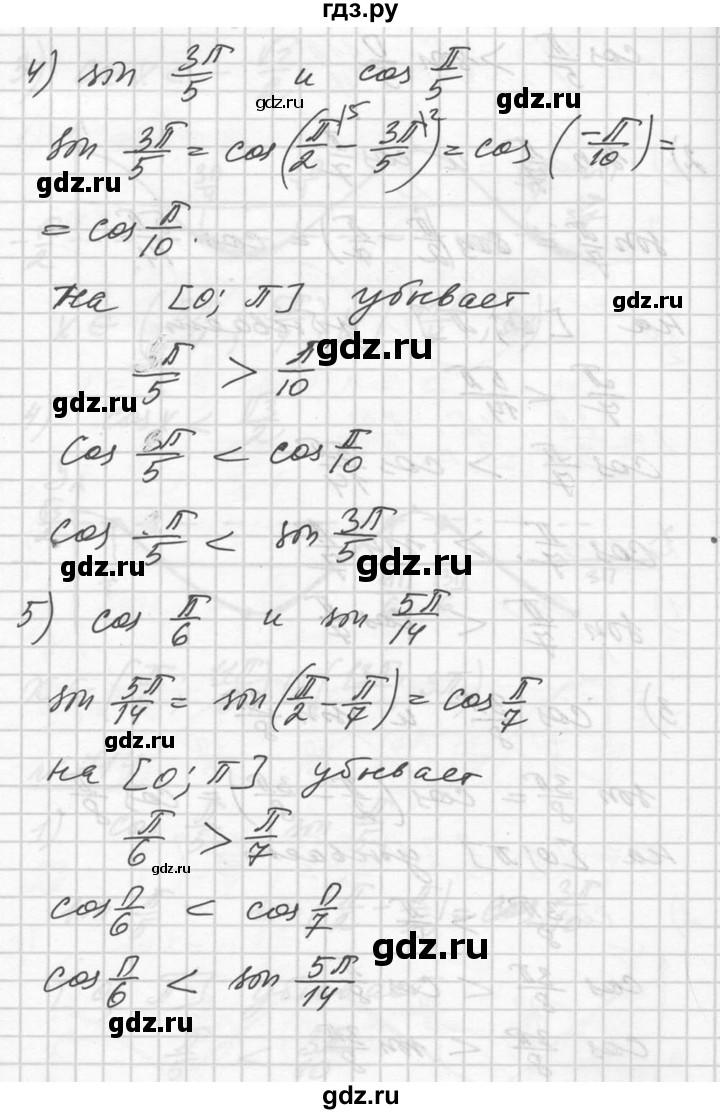 гдз.ру
4) sin 3π/5 и cos π/5
gdz.ru
gdz.ru
sin 3π/5 = cos(π/2 |5 - 3π/5 |2) = cos(-π/10) =
gdz.ru
= cos π/10.
на [0; π] убывает
gdz.ru
gdz.ru
π/5 > π/10
gdz.ru
cos π/5 < cos π/10
cos π/5 < sin 3π/5
gdz.ru
gdz.ru
5) cos π/6 и sin 5π/14
sin 5π/14 = sin(π/2 - π/7) = cos π/7
gdz.ru
на [0; π] убывает
π/6 > π/7
gdz.ru
cos π/6 < cos π/7
gdz.ru
cos π/6 < sin 5π/14
gdz.ru
gdz.ru